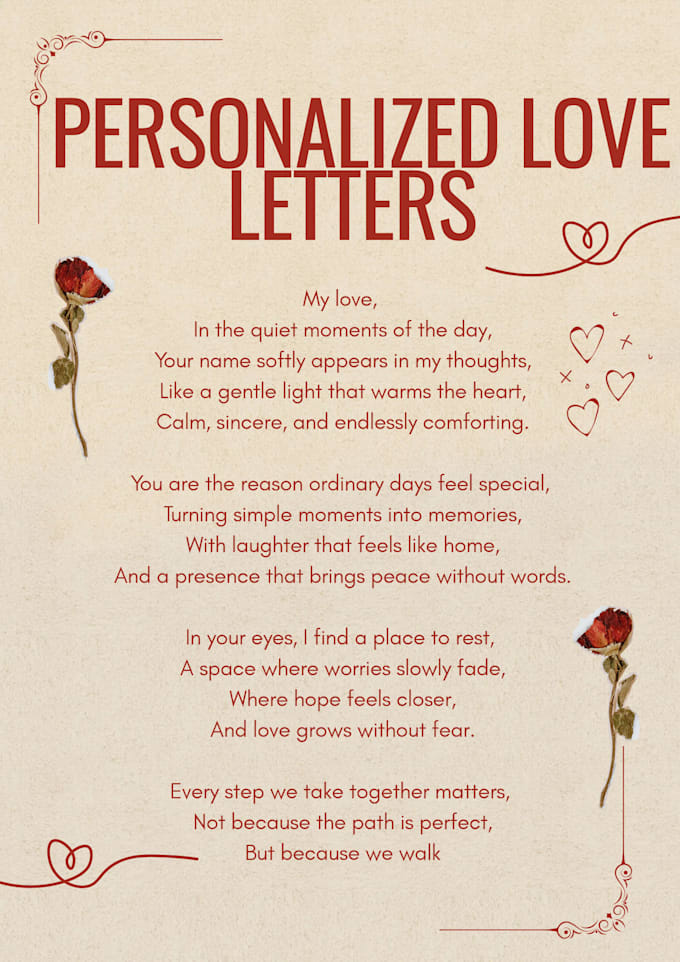 PERSONALIZED LOVE
LETTERS
My love,
In the quiet moments of the day,
Your name softly appears in my thoughts,
Like a gentle light that warms the heart,
Calm, sincere, and endlessly comforting.
You are the reason ordinary days feel special,
Turning simple moments into memories,
With laughter that feels like home,
And a presence that brings peace without words.
In your eyes, I find a place to rest,
A space where worries slowly fade,
Where hope feels closer,
And love grows without fear.
Every step we take together matters,
Not because the path is perfect,
But because we walk